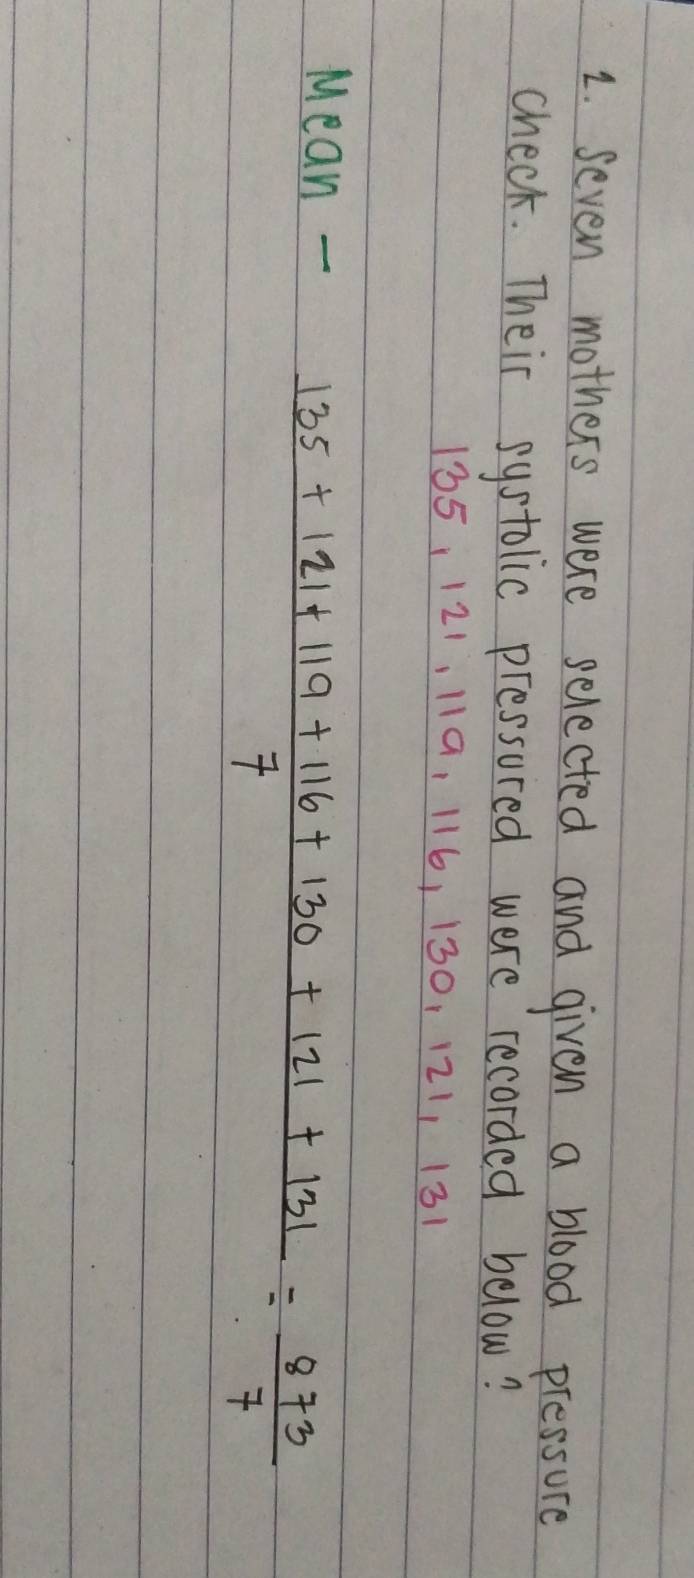 2. Seven mothers were selected and given a blood pressure
check. Their systolic pressured were recorded below?
135, 121, 119, 116, 130, 121, 131
Mean - 135 + 121 + 119 + 116 + 130 + 121 + 131 = 873
7 7